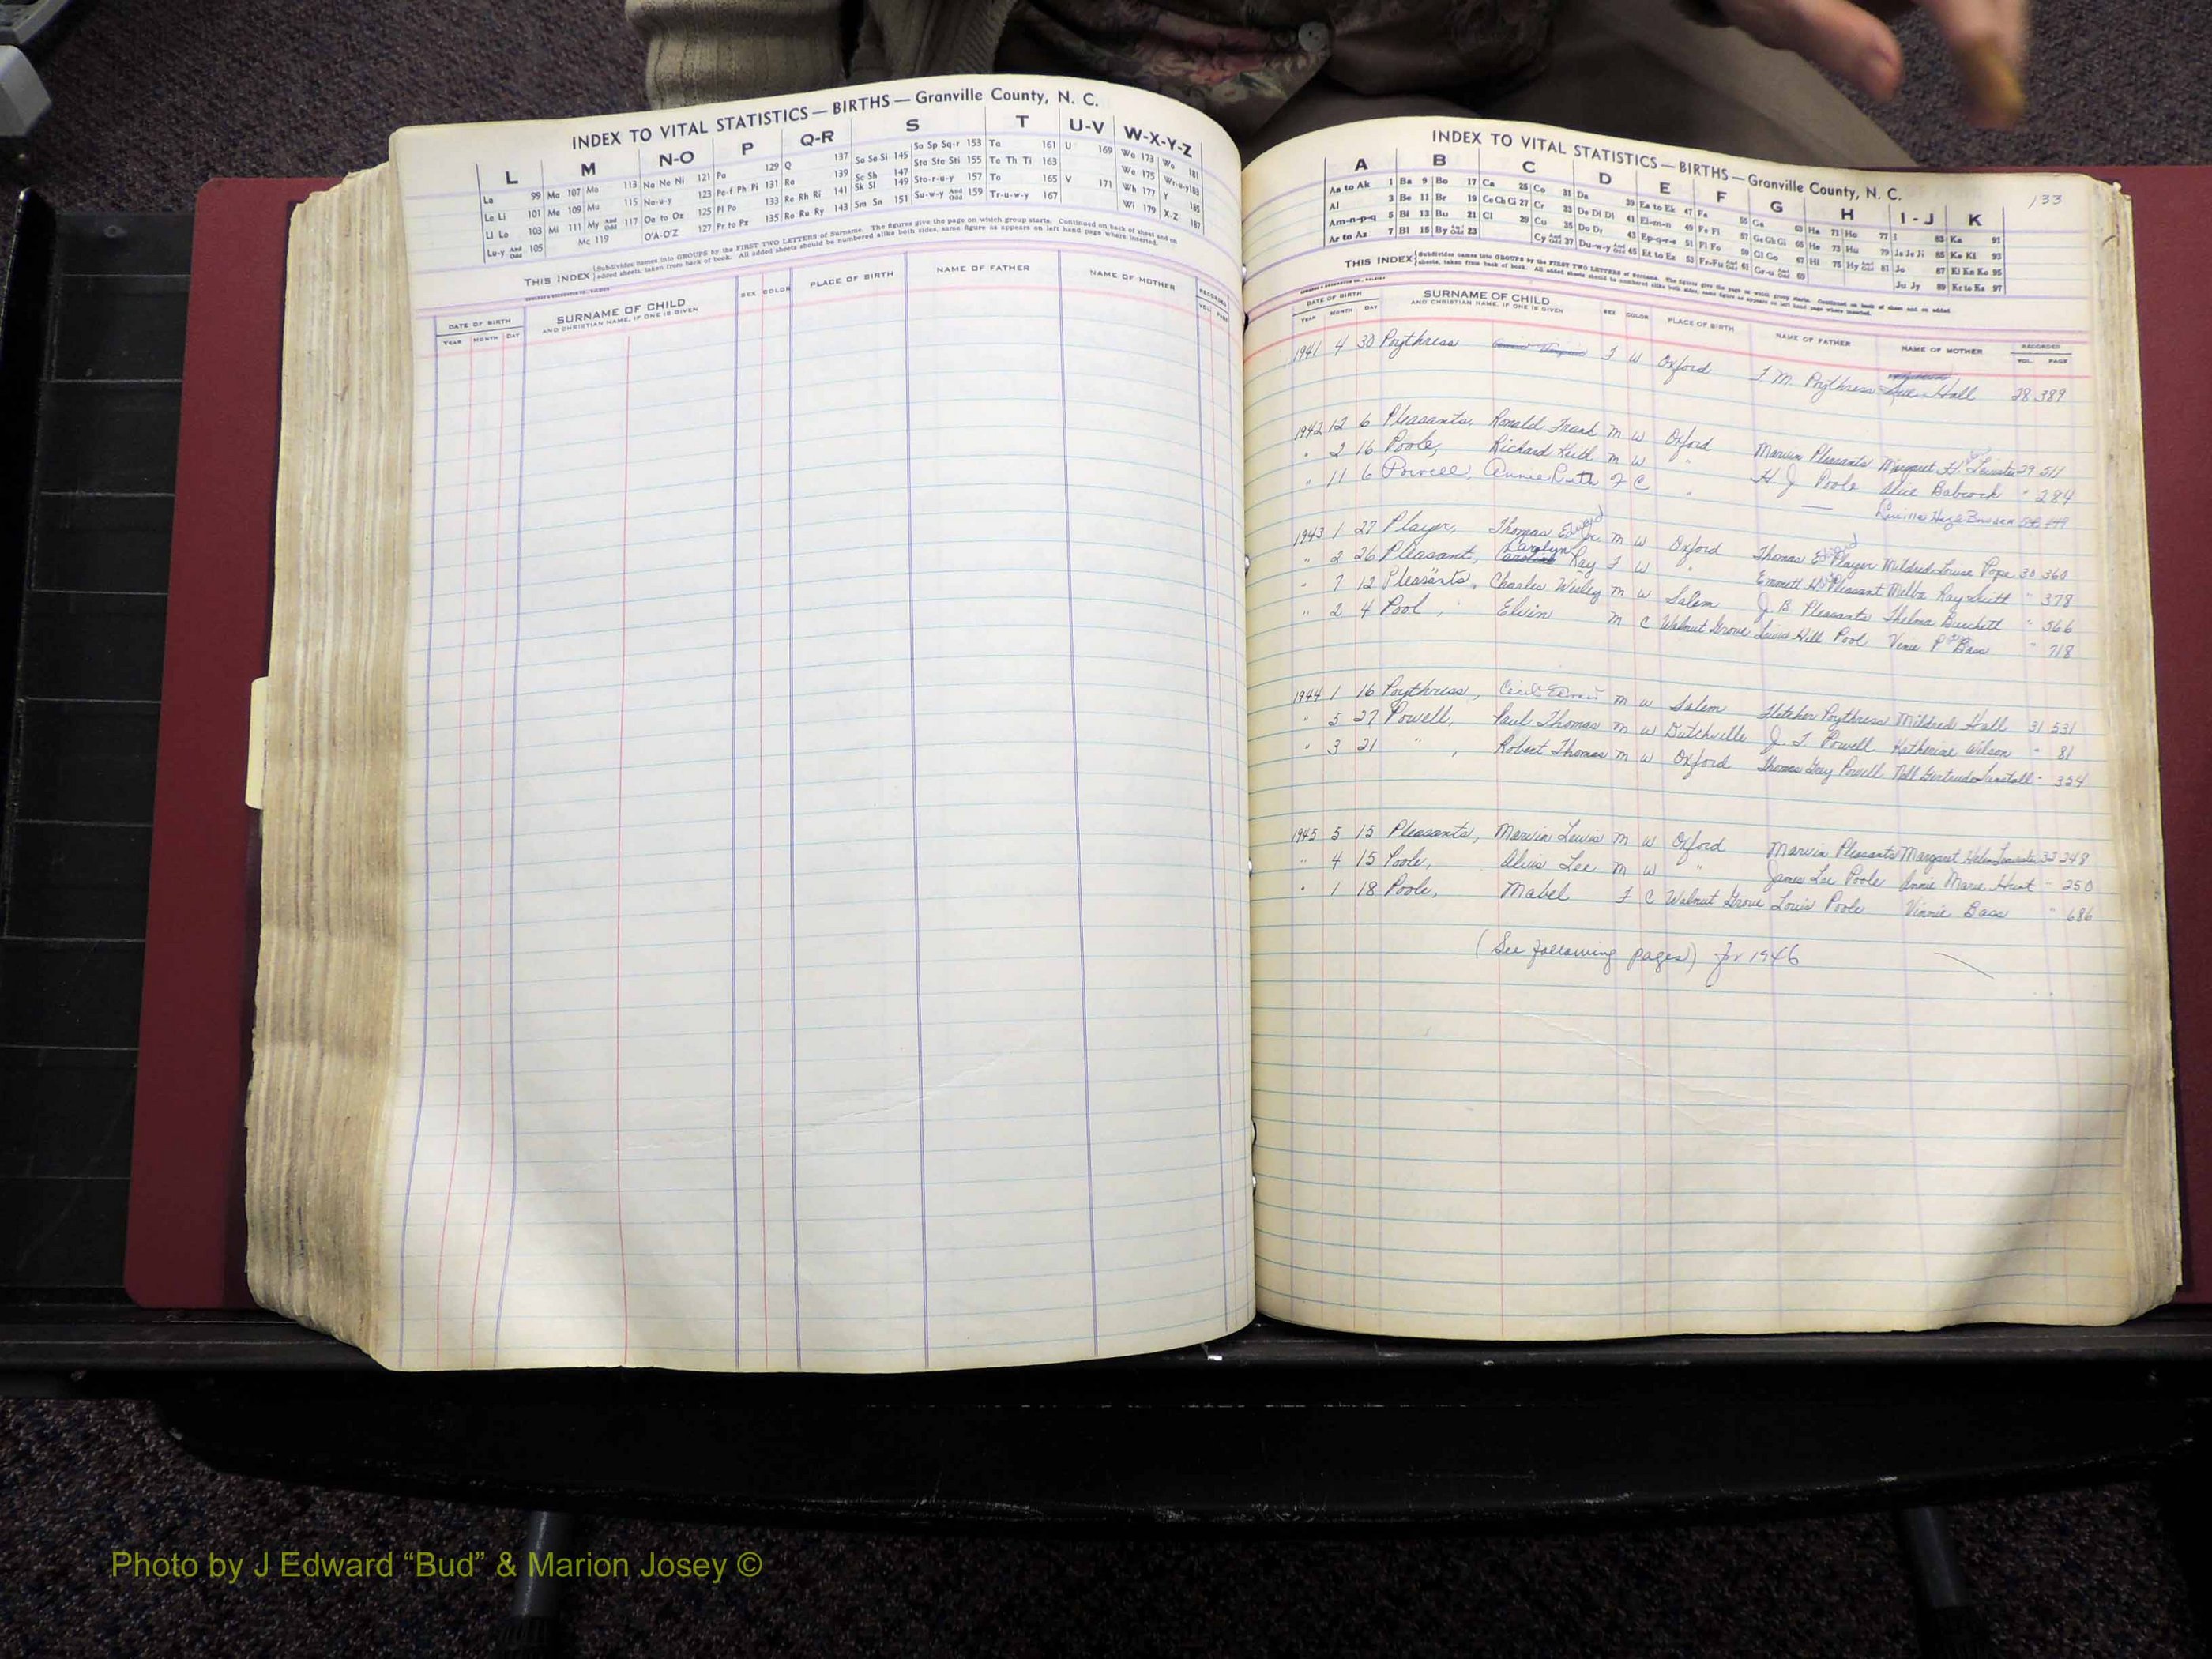 INDEX TO VITAL STATISTICS — BIRTHS — Granville County, N. C.
L M N-O P Q-R S T U-V W-X-Y-Z
La 99 Ma 107 Mo 113 Na Ne Ni 121 Pa 129 Q 137 Sa Se Si 145 So Sp Sq-r 153 Ta 161 U 169 Wa 173 Wo 181
Le Li 101 Ma 109 Mu 115 No-u-y 123 Pe-f Ph Pi 131 Ra 139 Sc Sh 147 Sta Ste Sti 155 Te Th Ti 163 We 175 Wr-u-y 183
Ll Lo 103 Mi 111 My And Odd 117 Oa to Oz 125 Pl Po 133 Re Rh Ri 141 Sk Sl 149 Sto-r-u-y 157 To 165 V 171 Wh 177 Y 185
Lu-y And Odd 105 Mc 119 O'A-O'Z 127 Pr to Pz 135 Ro Ru Ry 143 Sm Sn 151 Su-w-y And Odd 159 Tr-u-w-y 167 Wi 179 X-Z 187
THIS INDEX Subdivides names into GROUPS by the FIRST TWO LETTERS of Surname. The figures give the page on which group starts. Continued on back of sheet and on
added sheets, taken from back of book. All added sheets should be numbered alike both sides, same figure as appears on left hand page where inserted.
DATE OF BIRTH SURNAME OF CHILD SEX COLOR PLACE OF BIRTH NAME OF FATHER NAME OF MOTHER RECORDED
YEAR MONTH DAY AND CHRISTIAN NAME, IF ONE IS GIVEN VOL. PAGE
INDEX TO VITAL STATISTICS — BIRTHS — Granville County, N. C.
133
A B C D E F G H I-J K
Aa to Ak 1 Ba 9 Bo 17 Ca 25 Co 31 Da 39 Ea to Ek 47 Fa 55 Ga 63 Ha 71 Ho 77 I 83 Ka 91
Al 3 Be 11 Br 19 Ce Ch Ci 27 Cr 33 De Di Dl 41 El-m-n 49 Fe Fi 57 Ge Gh Gi 65 He 73 Hu 79 Ja Je Ji 85 Ke Kl 93
Am-n-p-q 5 Bi 13 Bu 21 Cl 29 Cu 35 Do Dr 43 Ep-q-r-s 51 Fl Fo 59 Gl Go 67 Hi 75 Hy And Odd 81 Jo 87 Ki Kn Ko 95
Ar to Az 7 Bl 15 By And Odd 23 Cy And Odd 37 Du-w-y And Odd 45 Et to Ez 53 Fr-Fu And Odd 61 Gr-u And Odd 69 Ju Jy 89 Kr to Kz 97
THIS INDEX Subdivides names into GROUPS by the FIRST TWO LETTERS of Surname. The figures give the page on which group starts. Continued on back of sheet and on added
sheets, taken from back of book. All added sheets should be numbered alike both sides, same figure as appears on left hand page where inserted.
DATE OF BIRTH SURNAME OF CHILD SEX COLOR PLACE OF BIRTH NAME OF FATHER NAME OF MOTHER RECORDED
YEAR MONTH DAY AND CHRISTIAN NAME, IF ONE IS GIVEN VOL. PAGE
1941 4 30 Poythress F W Oxford F. M. Poythress Sue Hall 28 389
1942 12 6 Pleasants, Ronald Frank M W Oxford Marvin Pleasants Margaret H. 29 511
" 2 16 Poole, Richard Keith M W " H. J. Poole Alice Babcock " 284
" 11 6 Powell, Annie Ruth F C " — Lucille Haze
1943 1 27 Player, Thomas Edward Jr. M W Oxford Thomas Edward Player Mildred Louise Pope 30 360
" 2 26 Pleasant, Carolyn Kay F W " Emmett H. Pleasant Melba Kay " 378
" 7 12 Pleasants, Charles Wesley M W Salem J. B. Pleasants Thelma Burchett " 566
" 2 4 Pool, Elvin M C Walnut Grove Lewis Hill Pool Vinie P. Bass " 718
1944 1 16 Poythress, M W Salem Fletcher Poythress Mildred Hall 31 531
" 5 27 Powell, Paul Thomas M W Dutchville J. T. Powell Katherine Wilson " 81
" 3 21 " , Robert Thomas M W Oxford Thomas Gray Powell Nell Gertrude Tunstall " 354
1945 5 15 Pleasants, Marvin Lewis M W Oxford Marvin Pleasants Margaret Helen 32 248
" 4 15 Poole, Alvis Lee M W " James Lee Poole Annie Marie Hunt " 250
" 1 18 Poole, Mabel F C Walnut Grove Louis Poole Vinnie Bass " 686
(See following pages) for 1946
Photo by J Edward “Bud” & Marion Josey ©